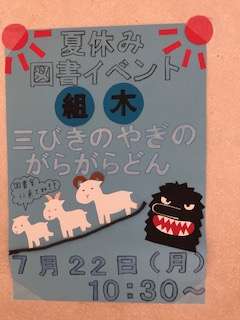 夏休み
図書イベント
組木
三びきのやぎの
がらがらどん
図書室
に来てね!!
7月22日(月)
10:30~